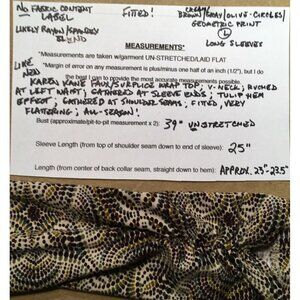 NO FABRIC CONTENT LABEL
LIKELY RAYON/SPANDEX BLEND
FITTED!
CREAM/BROWN/GRAY/OLIVE-CIRCLES/
GEOMETRIC PRINT
L
LONG SLEEVES
MEASUREMENTS*
*Measurements are taken w/garment UN-STRETCHED/LAID FLAT
*Margin of error on any measurement is plus/minus one half of an inch (1/2"), but I do
the best I can to provide the most accurate measurements possible.
LIKE NEW
KAREN KANE FAUX/SURPLICE WRAP TOP; V-NECK; RUCHED
AT LEFT WAIST; GATHERED AT SLEEVE ENDS; TULIP HEM
EFFECT; GATHERED AT SHOULDER SEAMS; FITTED, VERY
FLATTERING; ALL-SEASON!
Bust (approximate/pit-to-pit measurement x 2): 39" UNSTRETCHED
Sleeve Length (from top of shoulder seam down to end of sleeve): 25"
Length (from center of back collar seam, straight down to hem): APPROX. 23"-23.5"